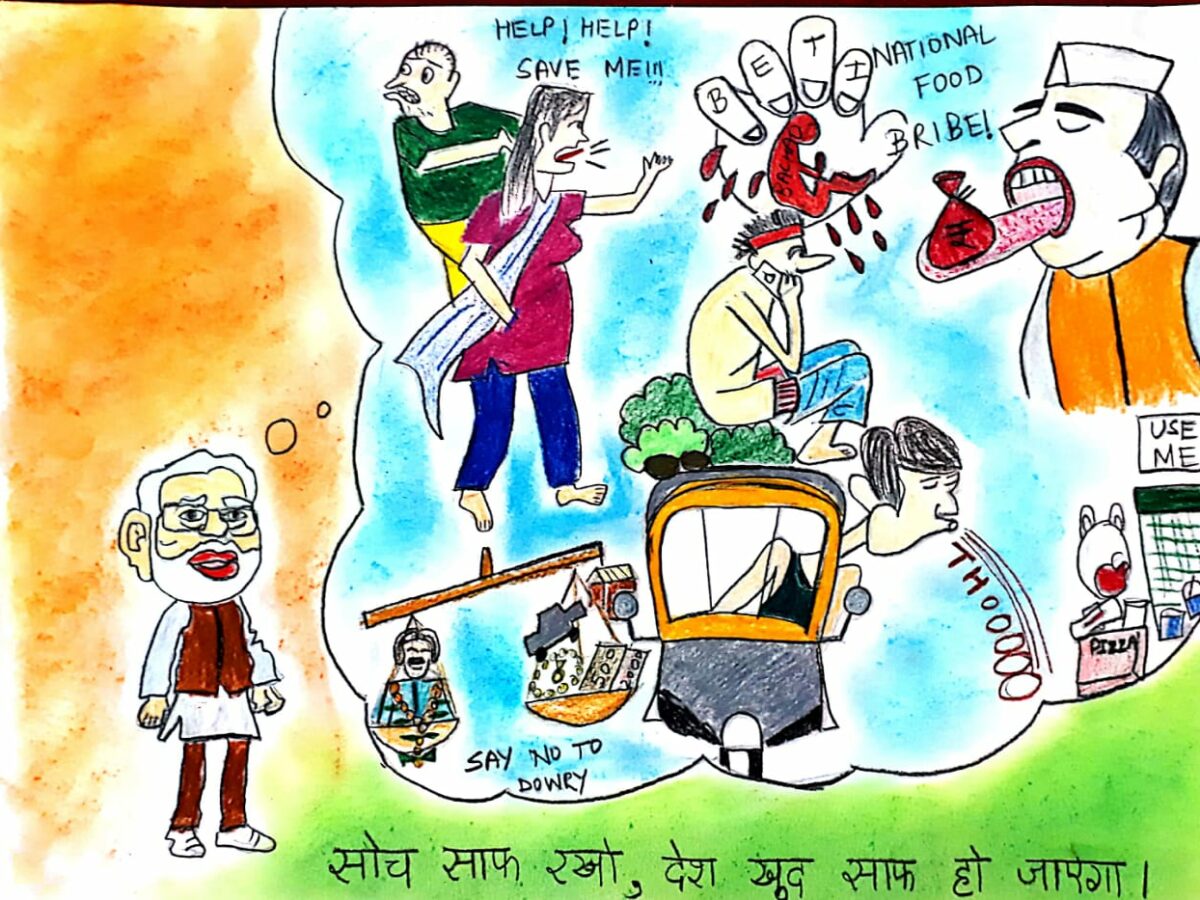 HELP! HELP!
SAVE ME!!!
BETI
NATIONAL
FOOD
BRIBE!
₹
USE
ME
THOOOOO
PIZZA
500
2000
SAY NO TO
DOWRY
सोच साफ रखो, देश खुद साफ हो जाएगा।